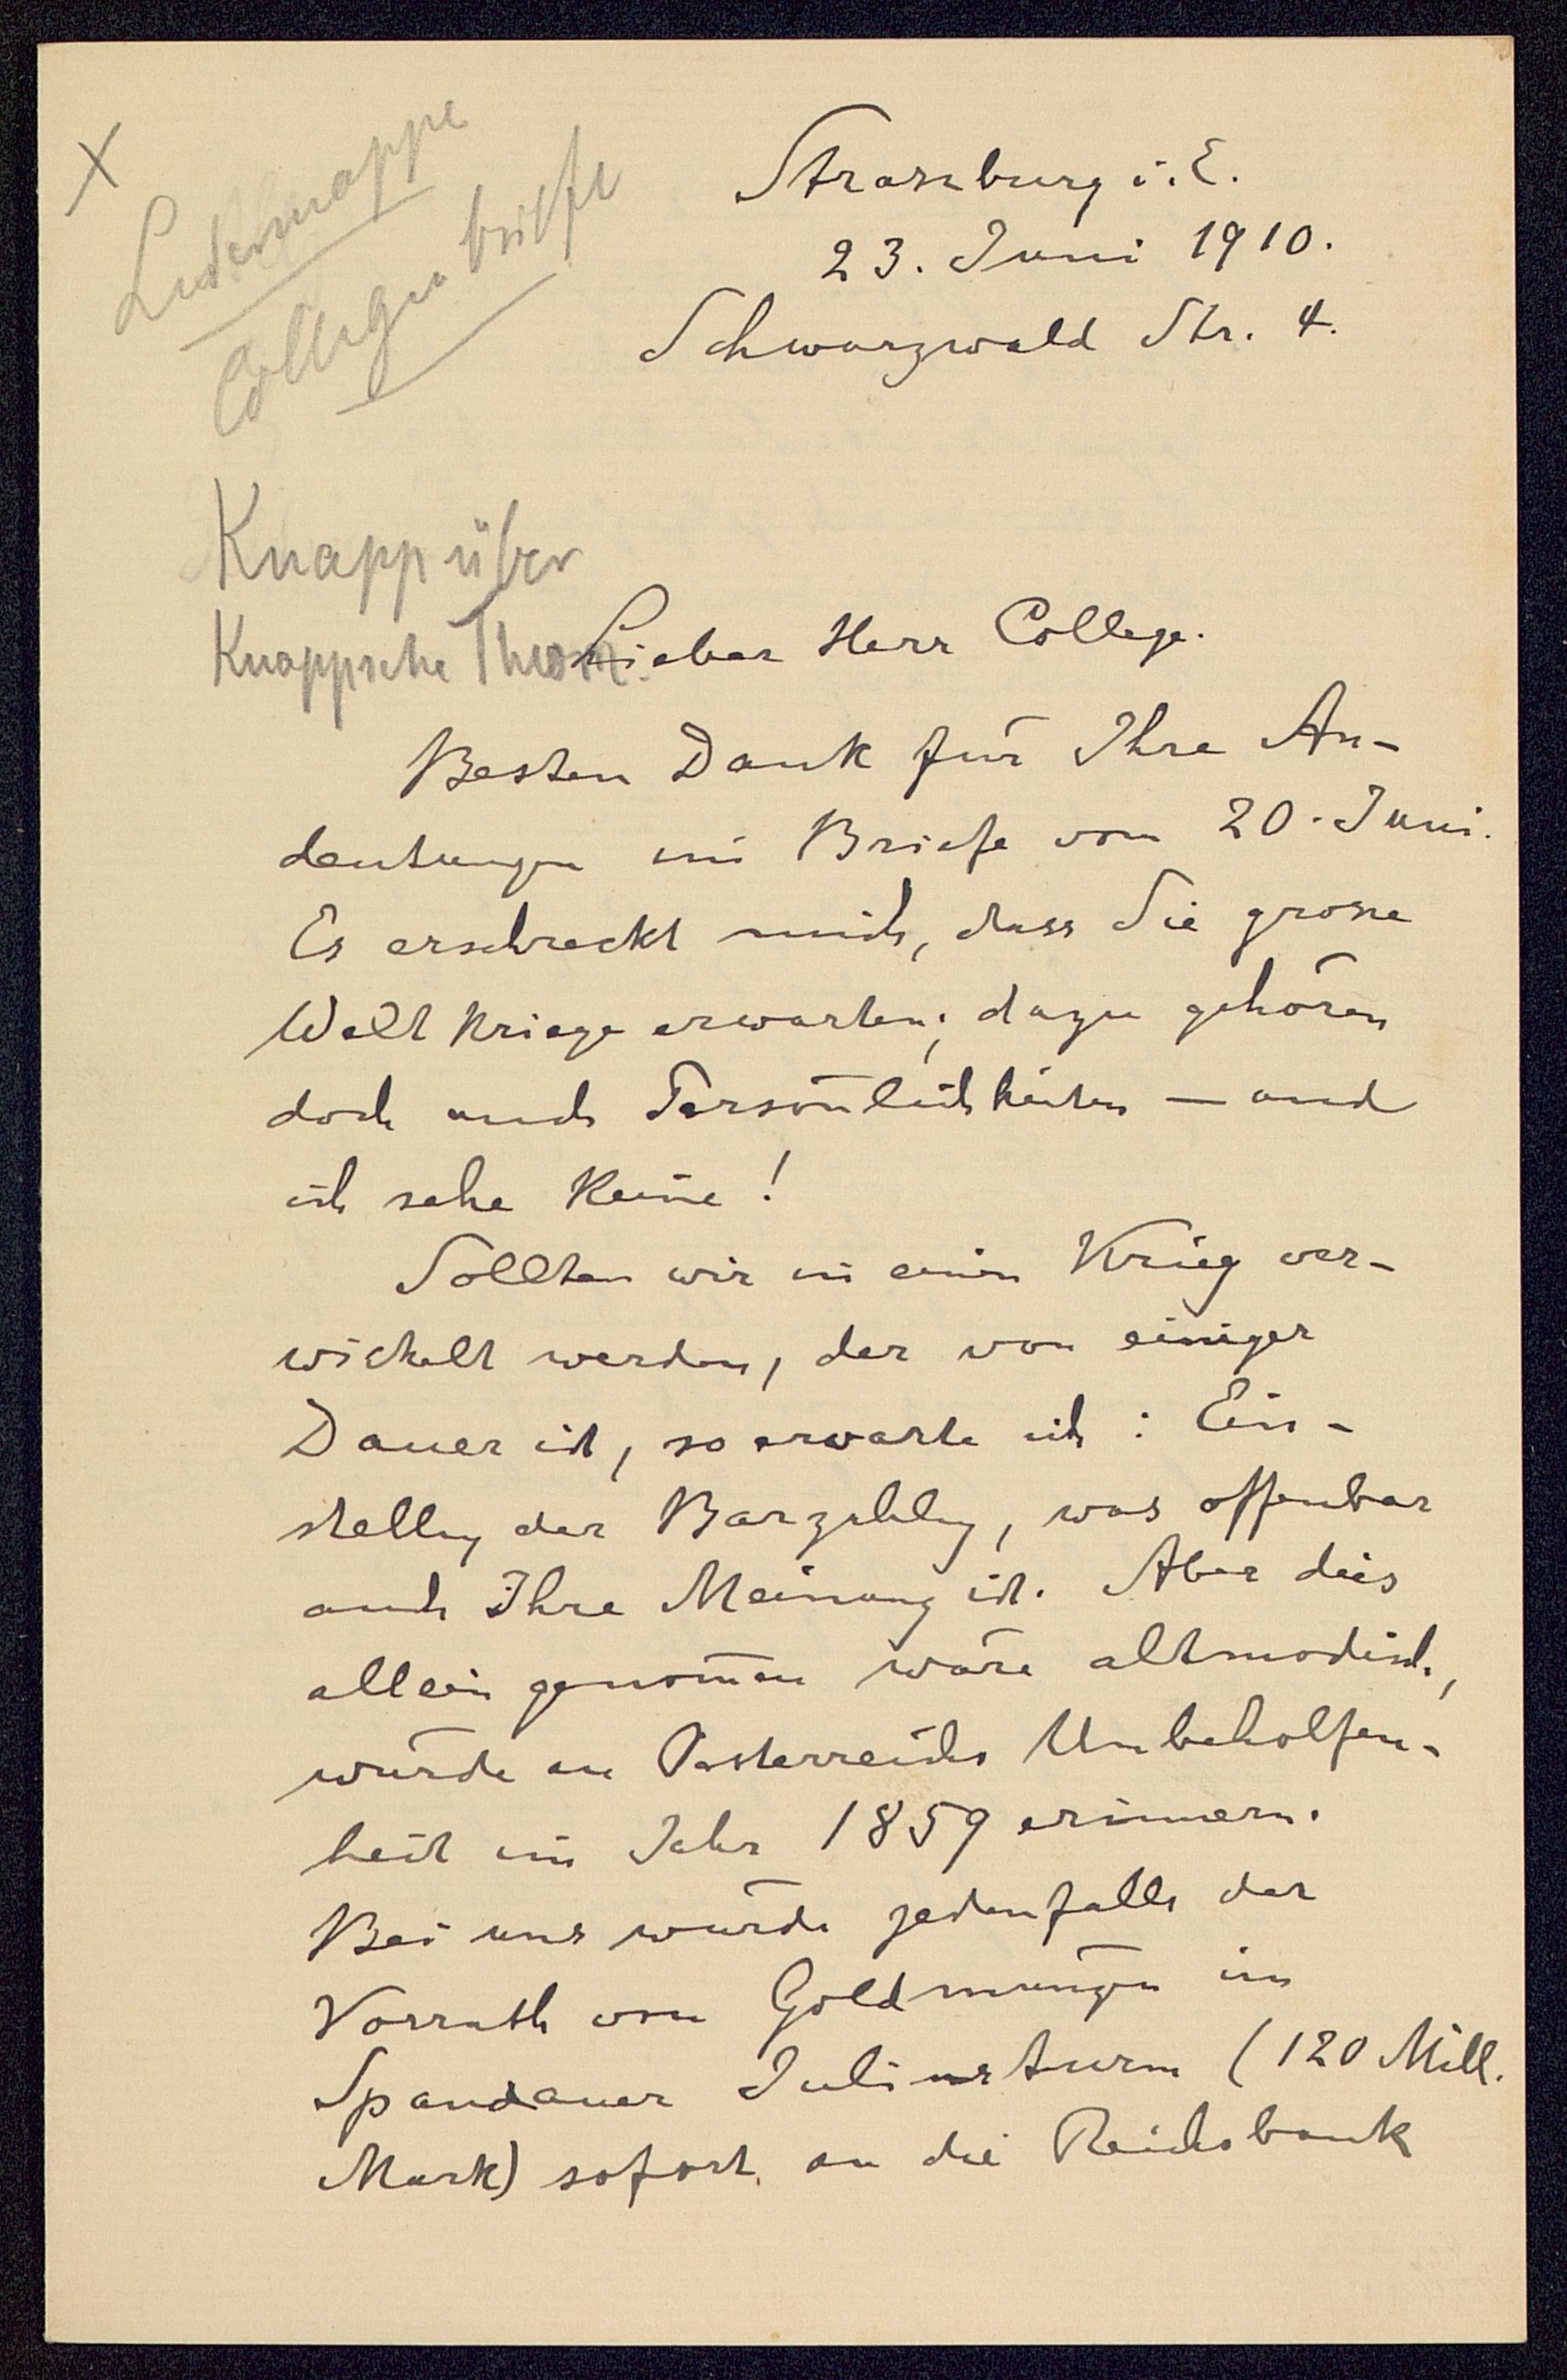 X
Ledermappe
Collegenbriefe
Straszburg i. E.
23. Juni 1910.
Schwarzwald Str. 4.
Knapp über
Knappsche Theorie.
Lieber Herr College.
Besten Dank für Ihre An-
deutungen im Briefe vom 20. Juni.
Es erschreckt mich, dass Sie grosse
Welt Kriege erwarten; dazu gehören
doch auch Persönlichkeiten — und
ich sehe Keine!
Sollten wir in einen Krieg ver-
wickelt werden, der von einiger
Dauer ist, so erwarte ich: Ein-
stellg der Barzahlg, was offenbar
auch Ihre Meinung ist. Aber dies
allein genom̄en wäre altmodisch,
würde an Oesterreichs Unbeholfen-
heit im Jahr 1859 erinnern.
Bei uns würde jedenfalls der
Vorrath von Goldmünzen im
Spandauer Juliusturm (120 Mill.
Mark) sofort an die Reichsbank